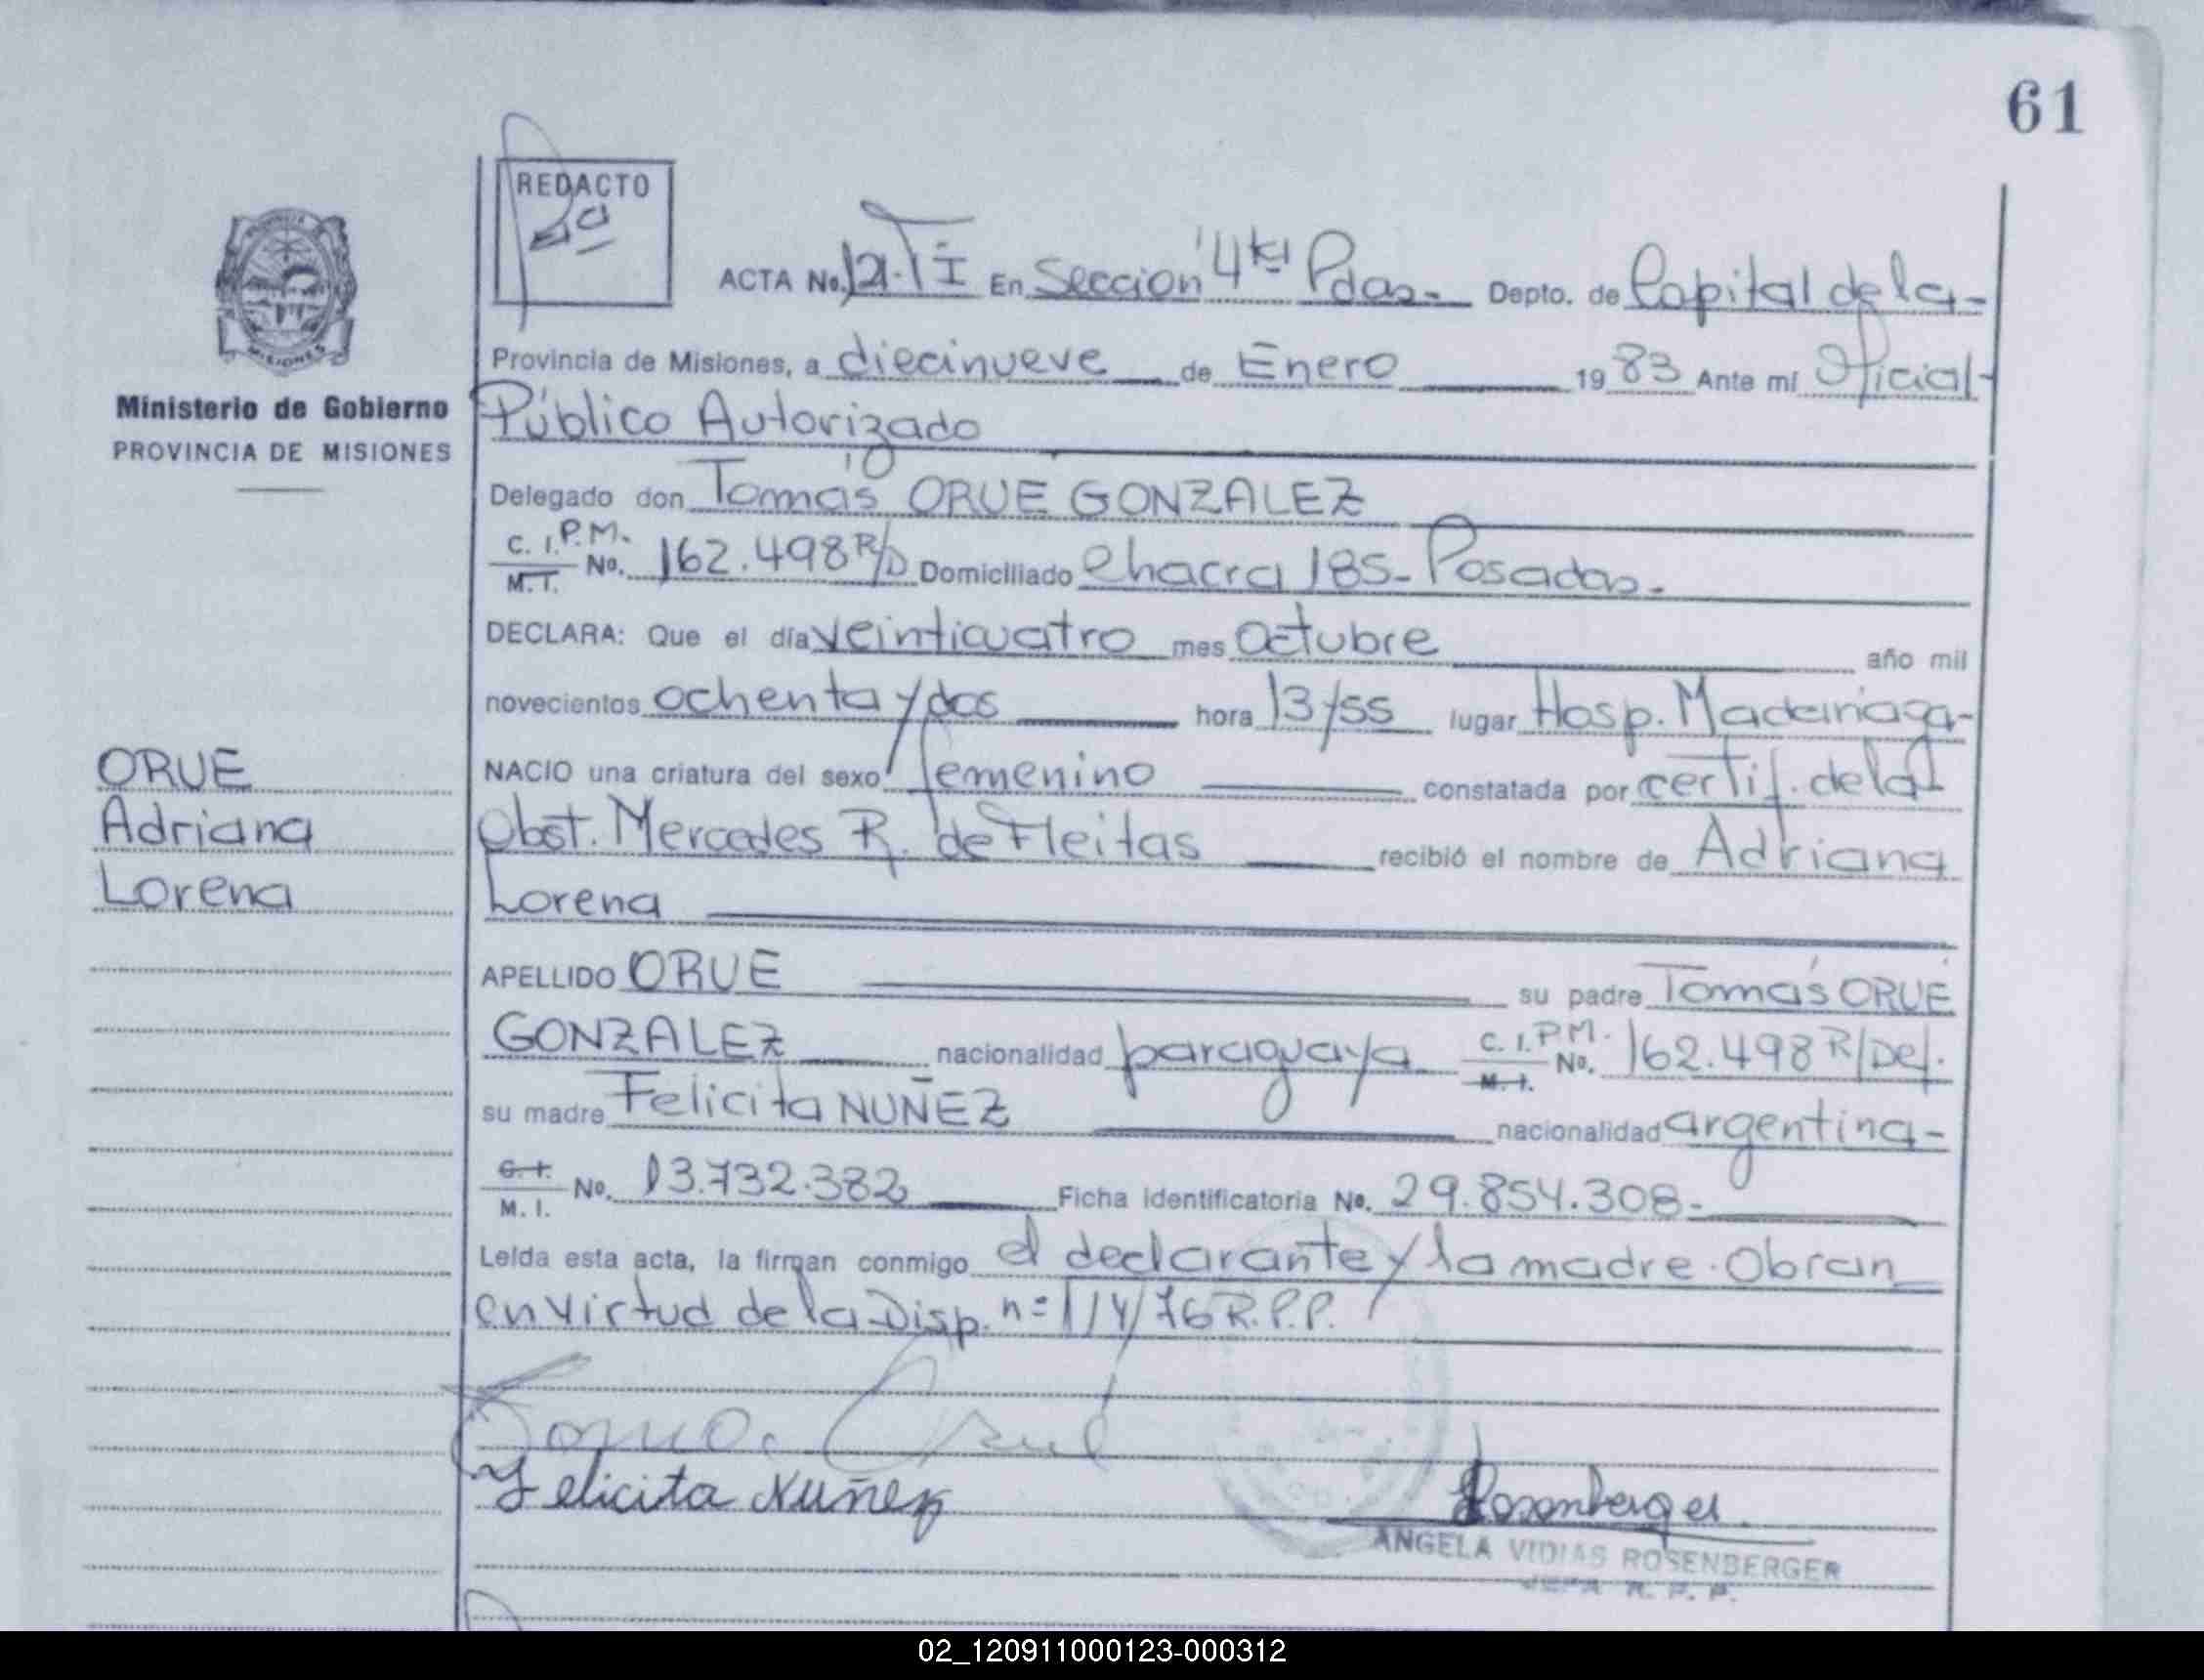 61
REDACTO
MISIONES
Ministerio de Gobierno
PROVINCIA DE MISIONES
ACTA No. 121-T I En Sección 4ta Pdas- Depto. de Capital de la-
Provincia de Misiones, a diecinueve de Enero 1983 Ante mí Oficial-
Público Autorizado
Delegado don Tomás ORUE GONZALEZ
C. I. P.M. M. I. No. 162.498 R/D Domiciliado Chacra 185- Posadas-
DECLARA: Que el día veinticuatro mes Octubre año mil
novecientos ochenta y dos hora 13/55 lugar Hosp. Madariaga-
NACIO una criatura del sexo femenino constatada por certif. de la
Obst. Mercedes R. de Fleitas recibió el nombre de Adriana
Lorena
ORUE
Adriana
Lorena
APELLIDO ORUE su padre Tomás ORUE
GONZALEZ nacionalidad paraguaya C. I. P.M. M. I. No. 162.498 R/Def.
su madre Felicita NUÑEZ nacionalidad argentina-
C. I. M. I. No. 13.732.382 Ficha identificatoria No. 29.854.308-
Leída esta acta, la firman conmigo el declarante y la madre. Obran
en virtud de la Disp. n= 114/76 R.P.P.
Felicita Nuñez
Rosenberger
ANGELA VIDIAS ROSENBERGER
JEFA R. P. P.
02_120911000123-000312